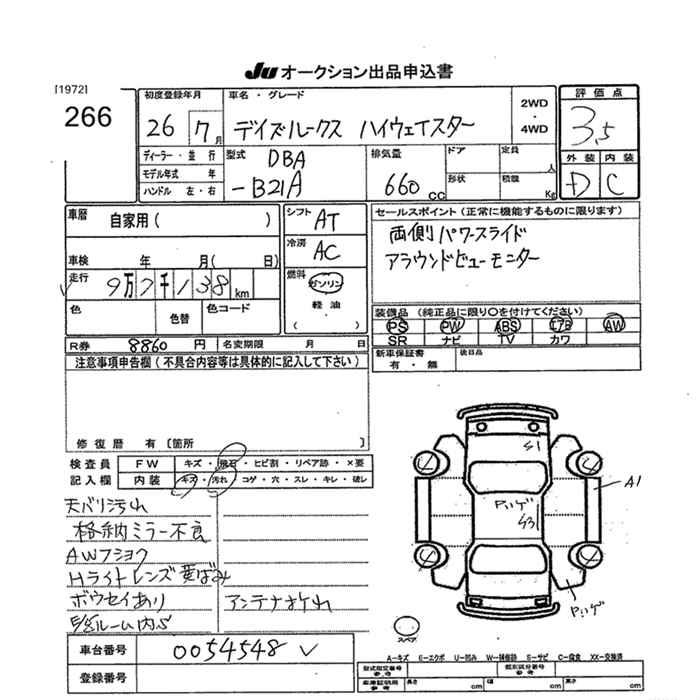 JU オークション出品申込書
[1972]
266
初度登録年月
26 7 月
車名・グレード
デイズルークス ハイウェイスター
2WD
・
4WD
評価点
3.5
外装 内装
D C
ディーラー・並行
モデル年式 年
ハンドル 左・右
型式
DBA
-B21A
排気量
660 cc
ドア
形状
定員
人
積載
Kg
車歴
自家用( )
車検 年 月( 日)
走行
9万7千138 km
色
色替
色コード
シフト
AT
冷房
AC
燃料
ガソリン
・
軽油
( )
セールスポイント(正常に機能するものに限ります)
両側パワースライド
アラウンドビューモニター
装備品(純正品に限り○を付けてください)
PS PW ABS エアB AW
SR ナビ TV カワ
新車保証書
有・無
後日品
R券 8860 円 名変期限 月 日
注意事項申告欄(不具合内容等は具体的に記入して下さい)
修復歴 有[箇所 ]
検査員
記入欄
FW キズ・飛石・ヒビ割・リペア跡・×要
内装 キズ・汚れ・コゲ・穴・スレ・キレ・破レ
天バリ汚れ
格納ミラー不良
AWフショク
Hライトレンズ黄ばみ
ボウセイあり
アンテナオレ
S1
A1
Pハゲ
S31
Pハゲ
スペア
A-キズ E-エクボ U-凹み W-補修跡 S-サビ C-腐食 XX-交換済
車台番号 0054548
登録番号
型式指定番号
参考
類別区分番号
参考
車庫証明用
参考
長さ cm 幅 cm 高さ cm